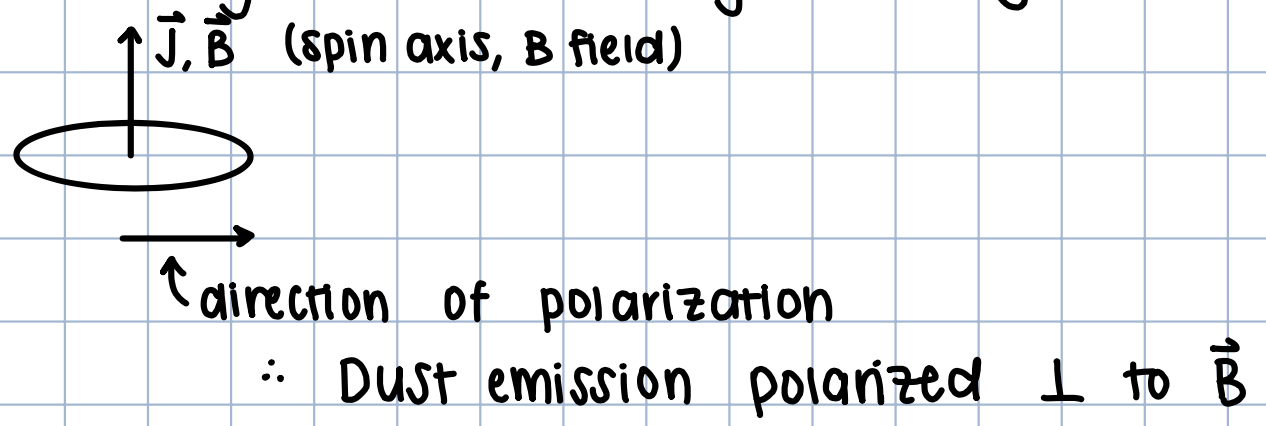 J⃗, B⃗ (spin axis, B field)
direction of polarization
∴ Dust emission polarized ⊥ to B⃗